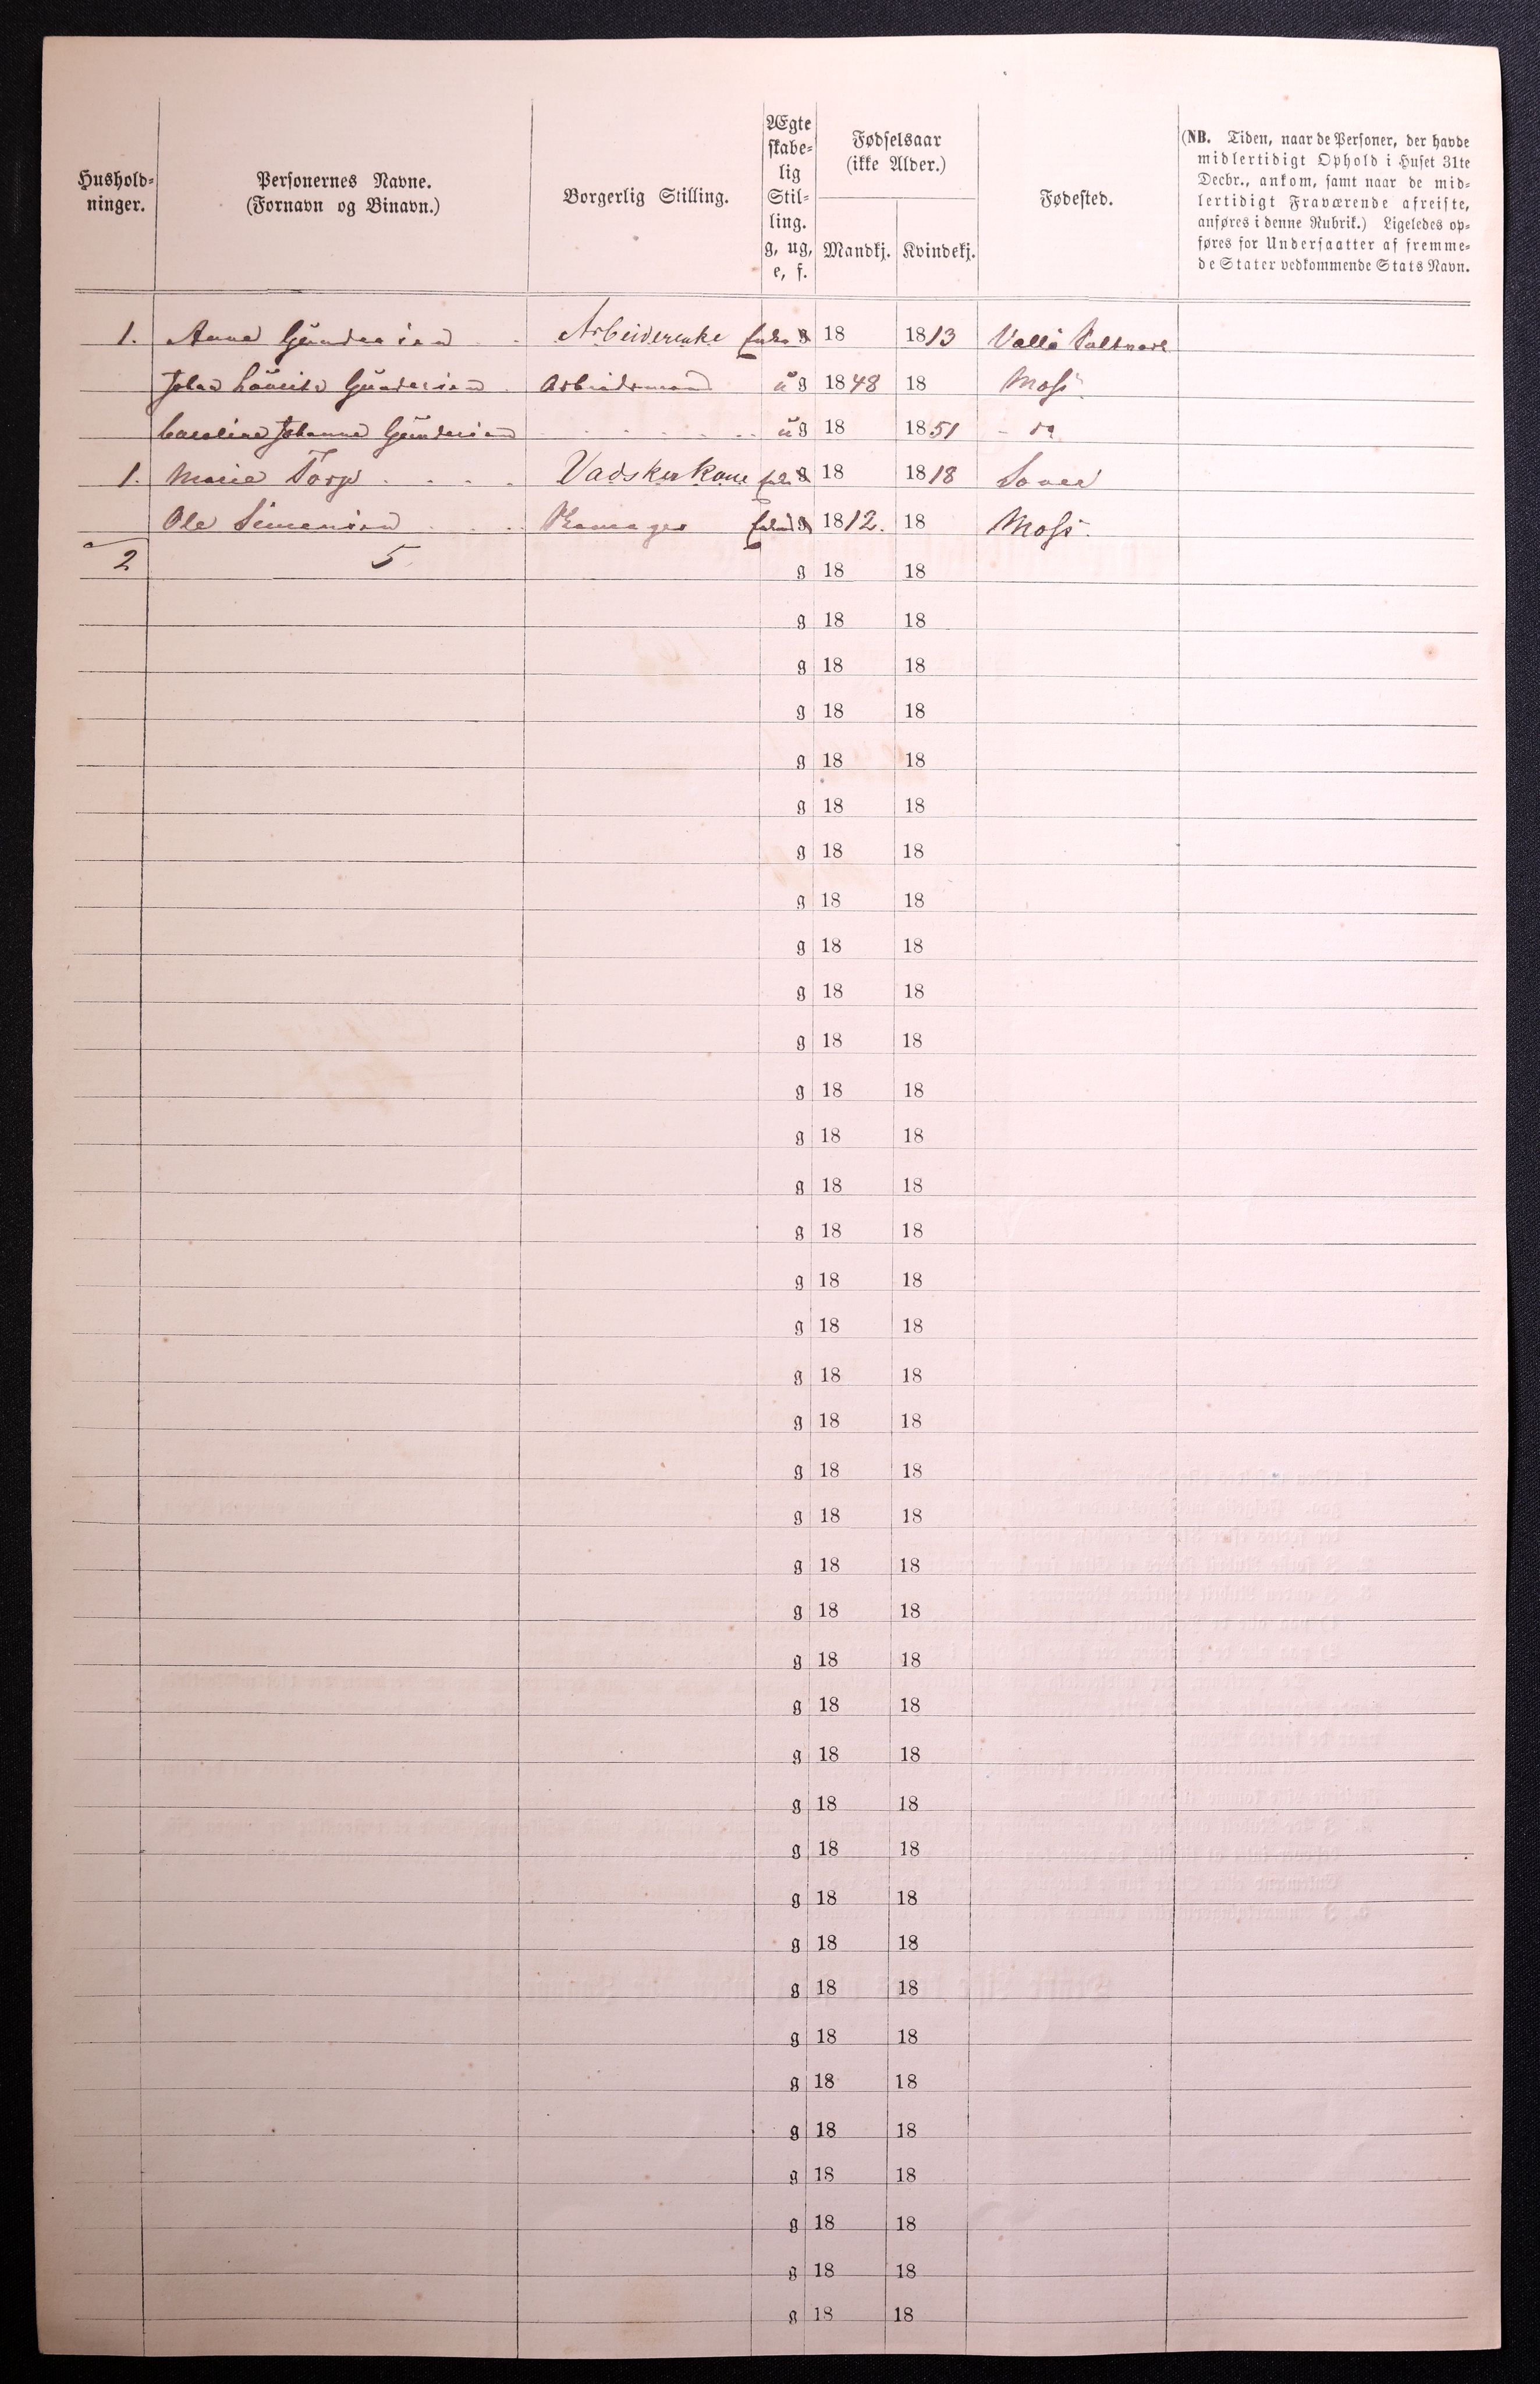 Hushold-
ninger.
Personernes Navne.
(Fornavn og Binavn.)
Borgerlig Stilling.
Ægte
skabe-
lig
Stil-
ling.
g, ug,
e, f.
Fødselsaar
(ikke Alder.)
Mandkj. Kvindekj.
Fødested.
(NB. Tiden, naar de Personer, der havde
midlertidigt Ophold i Huset 31te
Decbr., ankom, samt naar de mid-
lertidigt Fraværende afreiste,
anføres i denne Rubrik.) Ligeledes op-
føres for Undersaatter af fremme-
de Stater vedkommende Stats Navn.
1. Anne Gundersen Arbeiderenke g 18 1813 Vallø Saltværk
Johan Lauritz Gundersen Arbeidsmand ug 1848 18 Moss
Caroline Johanne Gundersen ug 18 1851 - do
1. Marie Torp Vadskerkone g 18 1818 Soner
Ole Simensen g 1812. 18 Moss.
2 5 g 18 18
g 18 18
g 18 18
g 18 18
g 18 18
g 18 18
g 18 18
g 18 18
g 18 18
g 18 18
g 18 18
g 18 18
g 18 18
g 18 18
g 18 18
g 18 18
g 18 18
g 18 18
g 18 18
g 18 18
g 18 18
g 18 18
g 18 18
g 18 18
g 18 18
g 18 18
g 18 18
g 18 18
g 18 18
g 18 18
g 18 18
g 18 18
g 18 18
g 18 18
g 18 18
g 18 18
g 18 18
g 18 18